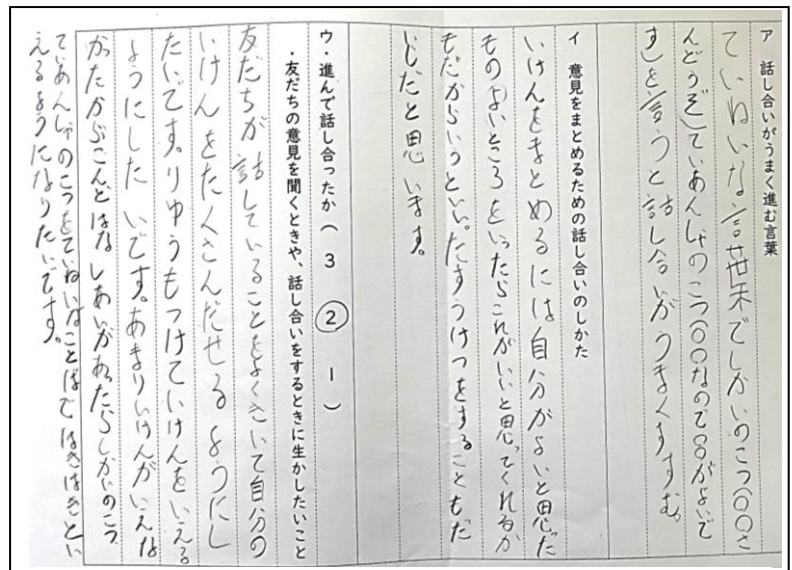 ア 話し合いがうまく進む言葉
ていねいな言葉でしかいのこつ(〇〇さ
んどうぞ)ていあんしゃのこつ(〇〇なので〇〇がよいで
す)を言うと話し合いがうまくすすむ。
イ 意見をまとめるための話し合いのしかた
いけんをまとめるには自分がよいと思った
もののよいところをいったらこれがいいと思ってくれるか
もだからいうといい。たすうけつをすることもだ
いじだと思います。
ウ・進んで話し合ったか(3 ② 1)
・友だちの意見を聞くときや、話し合いをするときに生かしたいこと
友だちが話していることをよくきいて自分の
いけんをたくさんだせるようにし
たいです。りゆうもつけていけんをいえる
ようにしたいです。あまりいけんがいえな
かったからこんどはなしあいがあったらしかいのこつ
ていあんしゃのこつをていねいなことばではきはきとい
えるようになりたいです。